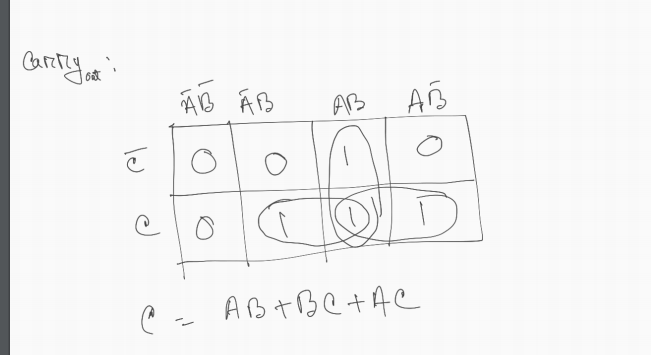 Carry out :
A̅B̅ A̅B AB AB̅
C̅ 0 0 1 0
C 0 1 1 1
C = AB+BC+AC